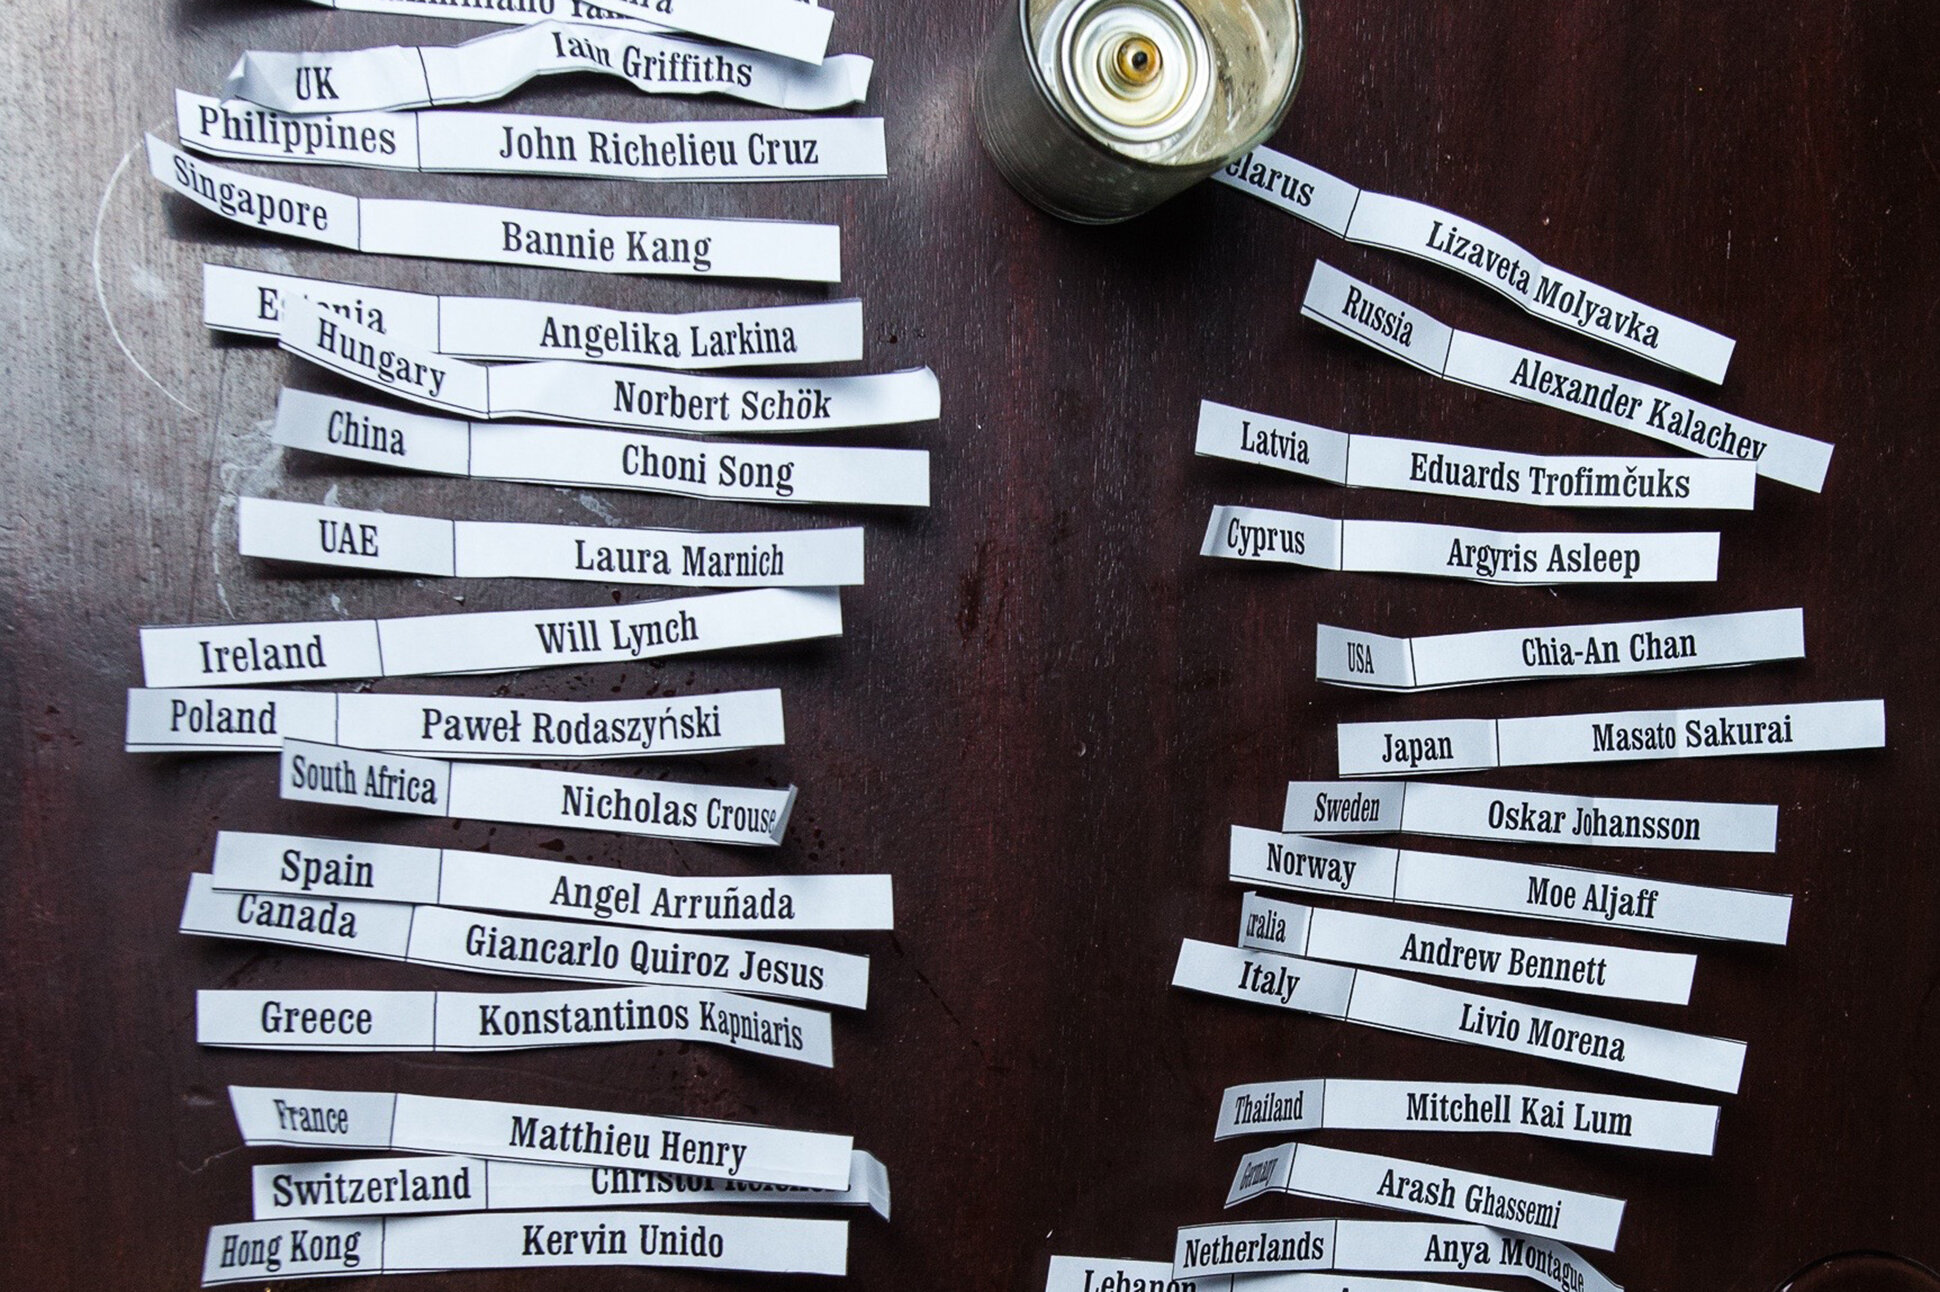 UK Iain Griffiths
Philippines John Richelieu Cruz
Singapore Bannie Kang
Estonia Angelika Larkina
Hungary Norbert Schök
China Choni Song
UAE Laura Marnich
Ireland Will Lynch
Poland Paweł Rodaszyński
South Africa Nicholas Crouse
Spain Angel Arruñada
Canada Giancarlo Quiroz Jesus
Greece Konstantinos Kapniaris
France Matthieu Henry
Switzerland Christof
Hong Kong Kervin Unido
elarus Lizaveta Molyavka
Russia Alexander Kalachev
Latvia Eduards Trofimčuks
Cyprus Argyris Asleep
USA Chia-An Chan
Japan Masato Sakurai
Sweden Oskar Johansson
Norway Moe Aljaff
ralia Andrew Bennett
Italy Livio Morena
Thailand Mitchell Kai Lum
Germany Arash Ghassemi
Netherlands Anya Montague
Lebanon